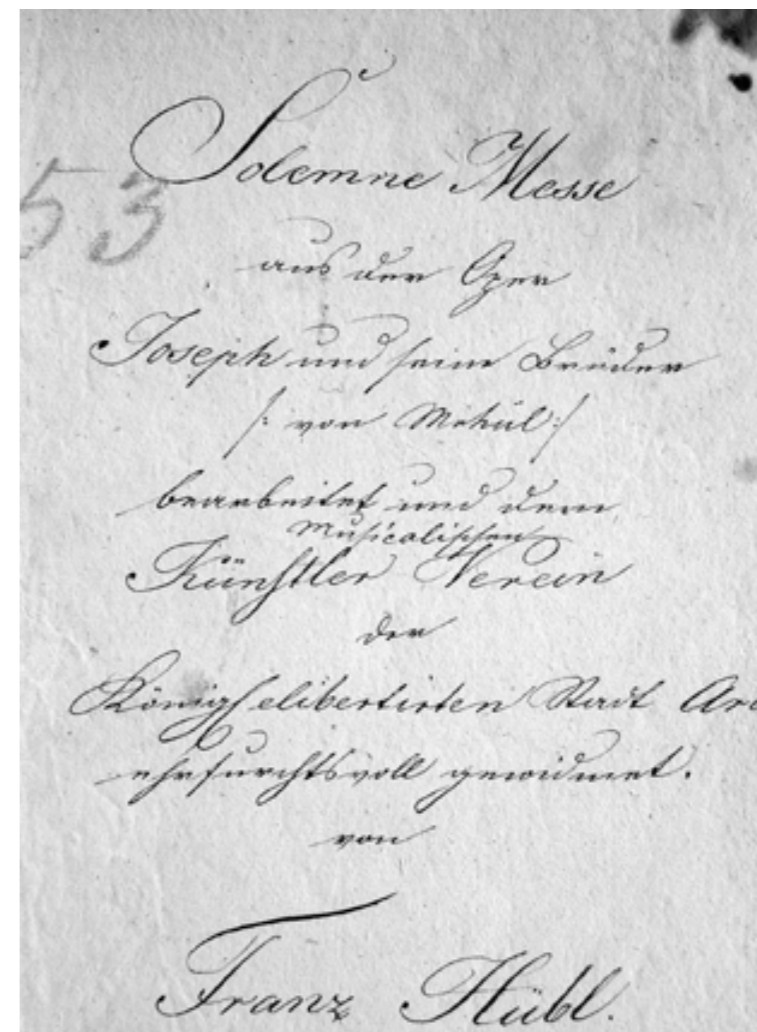 Solemne Messe
53
aus der Oper
Joseph und seine Brüder
/: von Mehül :/
bearbeitet und dem
Musicalischen
Künstler Verein
der
Königl elibertirten Stadt Ara
ehrfurchtsvoll gewidmet.
von
Franz Hübl.